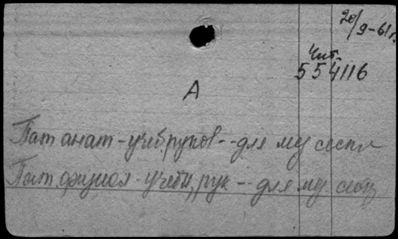 20/9-61г.
Чит.
554116
А
Пат анат - учеб. руков - для му
Пат. физиол - учебн. рук - для му.